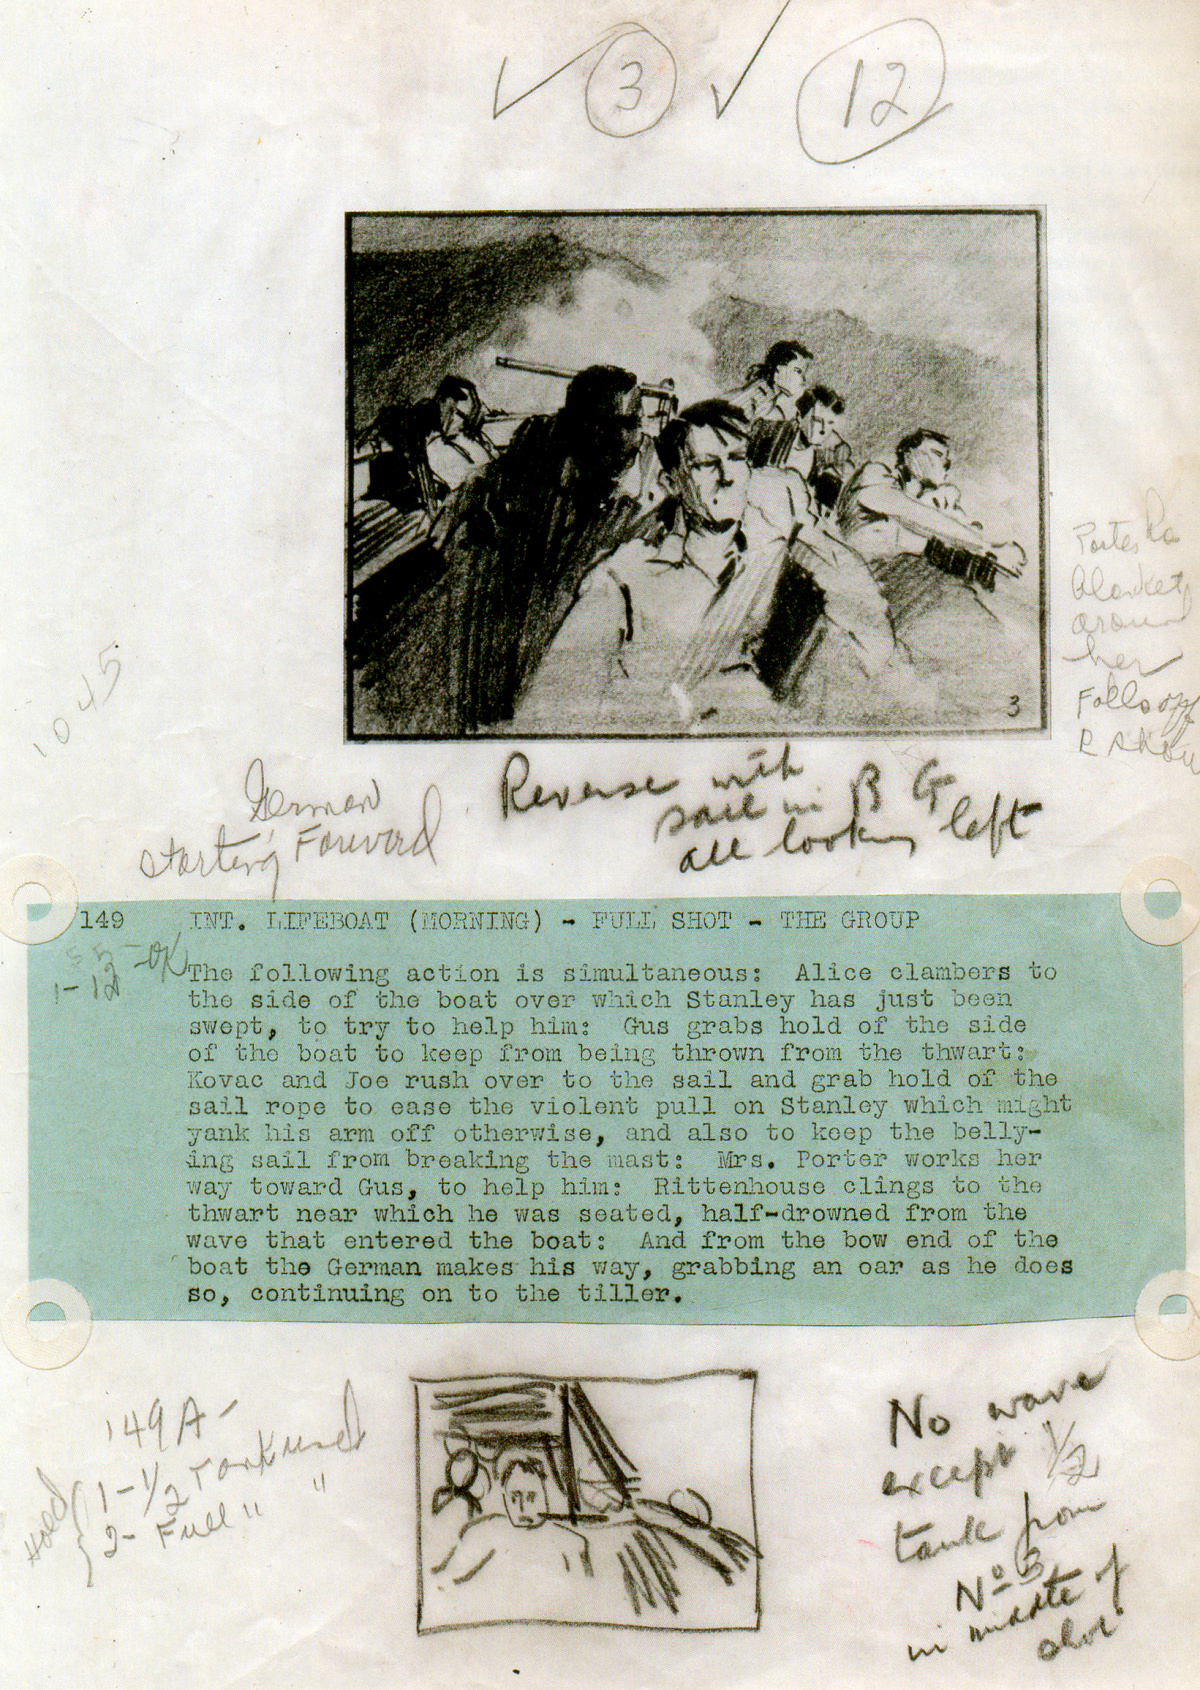 3 12
3
1045
Porter has
Blanket
around
her
Falls off
German
starting Forward
Reverse with
sail in B G
all looking left
149 INT. LIFEBOAT (MORNING) - FULL SHOT - THE GROUP
1-12-OK
The following action is simultaneous: Alice clambers to
the side of the boat over which Stanley has just been
swept, to try to help him: Gus grabs hold of the side
of the boat to keep from being thrown from the thwart:
Kovac and Joe rush over to the sail and grab hold of the
sail rope to ease the violent pull on Stanley which might
yank his arm off otherwise, and also to keep the belly-
ing sail from breaking the mast: Mrs. Porter works her
way toward Gus, to help him: Rittenhouse clings to the
thwart near which he was seated, half-drowned from the
wave that entered the boat: And from the bow end of the
boat the German makes his way, grabbing an oar as he does
so, continuing on to the tiller.
149A-
Hold
1-1/2 Tank used
2- Full " "
No wave
except 1/2
tank from
Nº 3
in middle of
shot